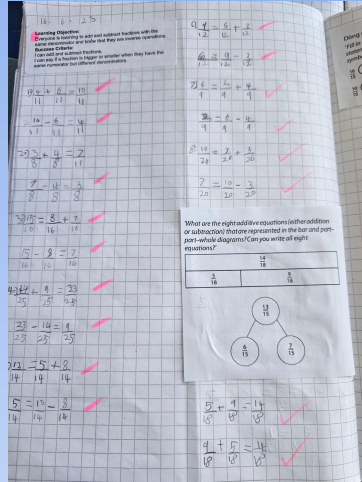 16. 6. 23
Learning Objective:
Everyone is learning to add and subtract fractions with the
same denominator and know that they are inverse operations.
Success Criteria:
I can add and subtract fractions.
I can say if a fraction is bigger or smaller when they have the
same numerator but different denominators.
4/11 + 6/11 = 10/11
10/11 - 6/11 = 4/11
3/8 + 4/8 = 7/11
7/8 - 4/8 = 3/8
15/16 = 8/16 + 7/16
15/16 - 8/16 = 7/16
14/25 + 9/25 = 23/25
23/25 - 14/25 = 9/25
13/14 = 5/14 + 8/14
5/14 = 13/14 - 8/14
6/12 = 9/12 - 3/12
10/20 = 7/20 + 3/20
7/20 = 10/20 - 3/20
What are the eight additive equations (either addition
or subtraction) that are represented in the bar and part-
part-whole diagrams? Can you write all eight
equations?
14/18
5/18 9/18
13/15
6/15 7/15
5/18 + 9/18 = 14/18
9/18 + 5/18 = 14/18